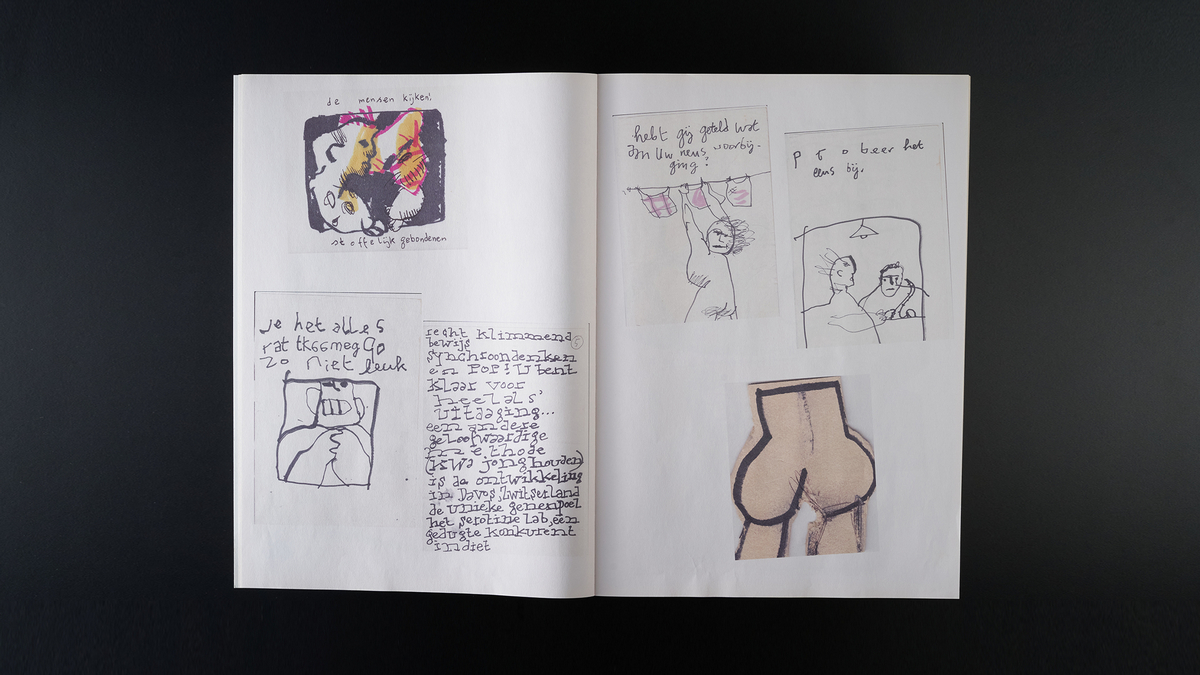 de mensen kijken!
stoffelijk gebondenen
je het alles
zo niet leuk
recht klimmend
5
bewijs
synchroondenken
en POP! U bent
klaar voor
heel als'
uitdaging...
een andere
geloofwaardige
methode
(KWa jong houden)
is da ontwikkeling
in Davos, Zwitserland
de unieke genenpoel
het serotine lab, een
gedugte konkurent
in diet
hebt gij geteld wat
an uw neus voorbij-
ging?
probeer het
eens bij.